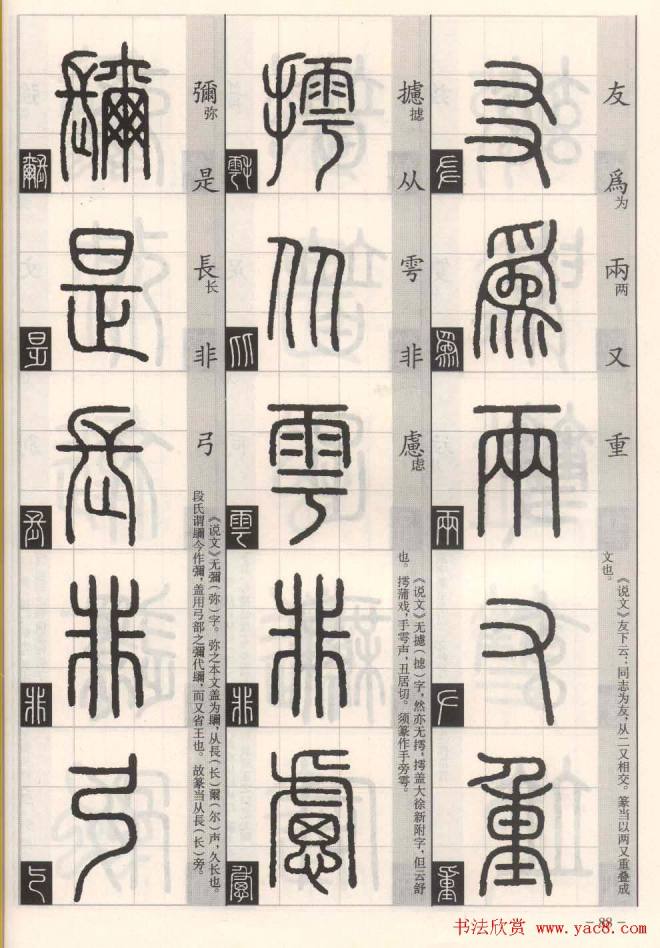 友
爲为
兩两
又
重
友
爲
兩
又
重
《说文》友下云：同志为友，从二又相交。篆当以两又重叠成
文也。
攄摅
从
雩
非
慮虑
摴
从
雩
非
慮
《说文》无攄（摅）字，然亦无摴，摴盖大徐新附字，但云舒
也。摴蒲戏，手雩声，丑居切。须篆作手旁雩。
彌弥
是
長长
非
弓
镾
是
長
非
弓
《说文》无彌（弥）字。弥之本文盖为镾，从長（长）爾（尔）声，久长也。
段氏谓镾今作彌，盖用弓部之彌代镾，而又省王也。故篆当从長（长）旁。
- 88 -
书法欣赏 www.yac8.com